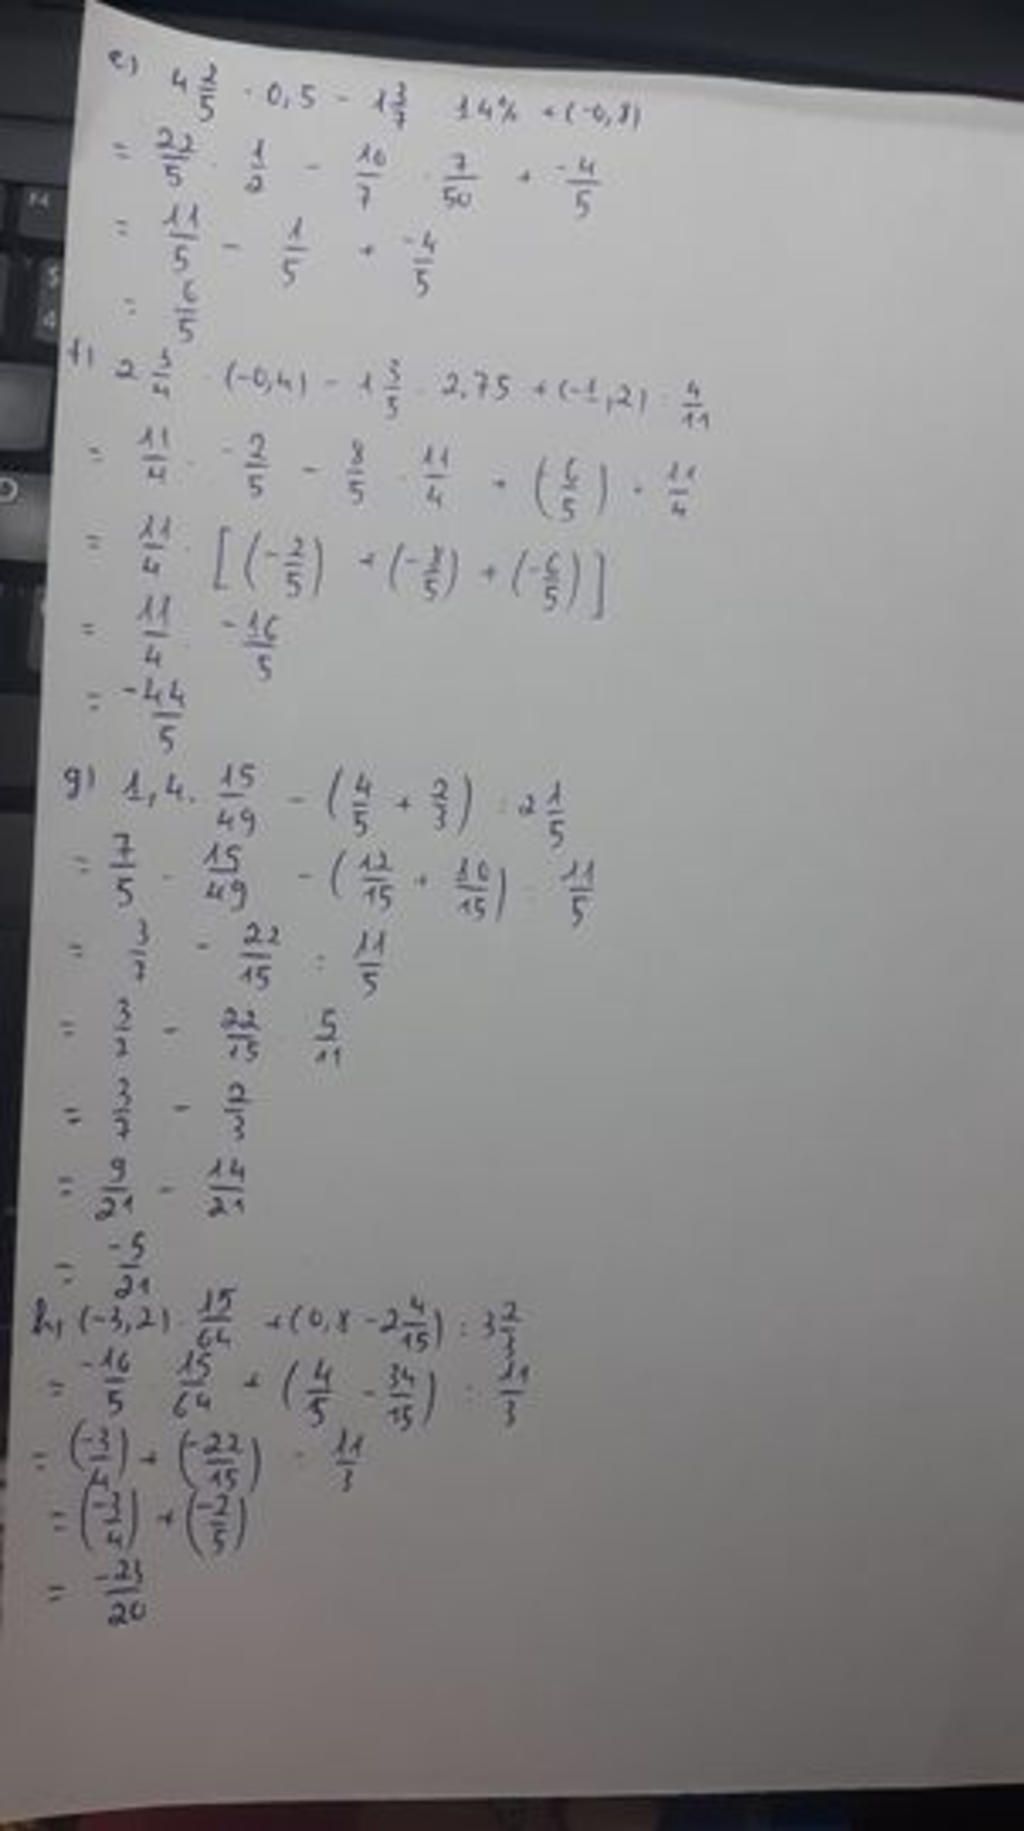 e) 4 2/5 . 0,5 - 1 3/7 . 14% + (-0,8)
= 22/5 . 1/2 - 10/7 . 7/50 + -4/5
= 11/5 - 1/5 + -4/5
= 6/5
f) 2 3/4 . (-0,4) - 1 3/5 . 2,75 + (-1,2) : 4/11
= 11/4 . -2/5 - 8/5 . 11/4 + (6/5) . 11/4
= 11/4 . [(-2/5) + (-8/5) + (-6/5)]
= 11/4 . -16/5
= -44/5
g) 1,4 . 15/49 - (4/5 + 2/3) : 2 1/5
= 7/5 . 15/49 - (12/15 + 10/15) : 11/5
= 3/7 - 22/15 : 11/5
= 3/7 - 22/15 . 5/11
= 3/7 - 2/3
= 9/21 - 14/21
= -5/21
h) (-3,2) . 15/64 + (0,8 - 2 4/15) : 3 2/3
= -16/5 . 15/64 + (4/5 - 34/15) : 11/3
= (-3/4) + (-22/15) : 11/3
= (-3/4) + (-2/5)
= -23/20